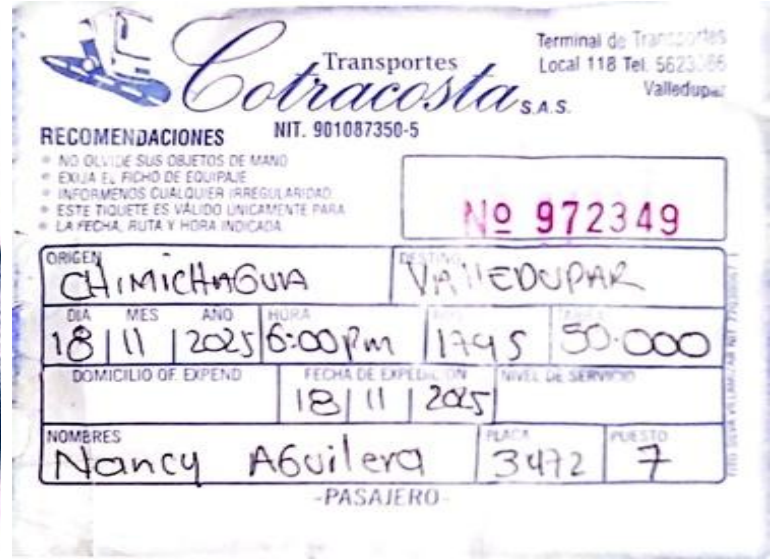 Transportes
Cotracosta S.A.S.
Terminal de Transportes
Local 118 Tel.
Valledupar
NIT. 901087350-5
RECOMENDACIONES
NO OLVIDE SUS OBJETOS DE MANO
EXIJA EL FICHO DE EQUIPAJE
INFORMENOS CUALQUIER IRREGULARIDAD
ESTE TIQUETE ES VÁLIDO UNICAMENTE PARA
LA FECHA, RUTA Y HORA INDICADA
Nº 972349
ORIGEN DESTINO
CHIMICHAGUA VALLEDUPAR
DIA MES AÑO HORA TARIFA
18 11 2025 6:00 pm 1795 50.000
DOMICILIO OF. EXPEND FECHA DE EXPEDICION NIVEL DE SERVICIO
18 11 2025
NOMBRES PLACA PUESTO
Nancy AGuilera 3472 7
-PASAJERO-